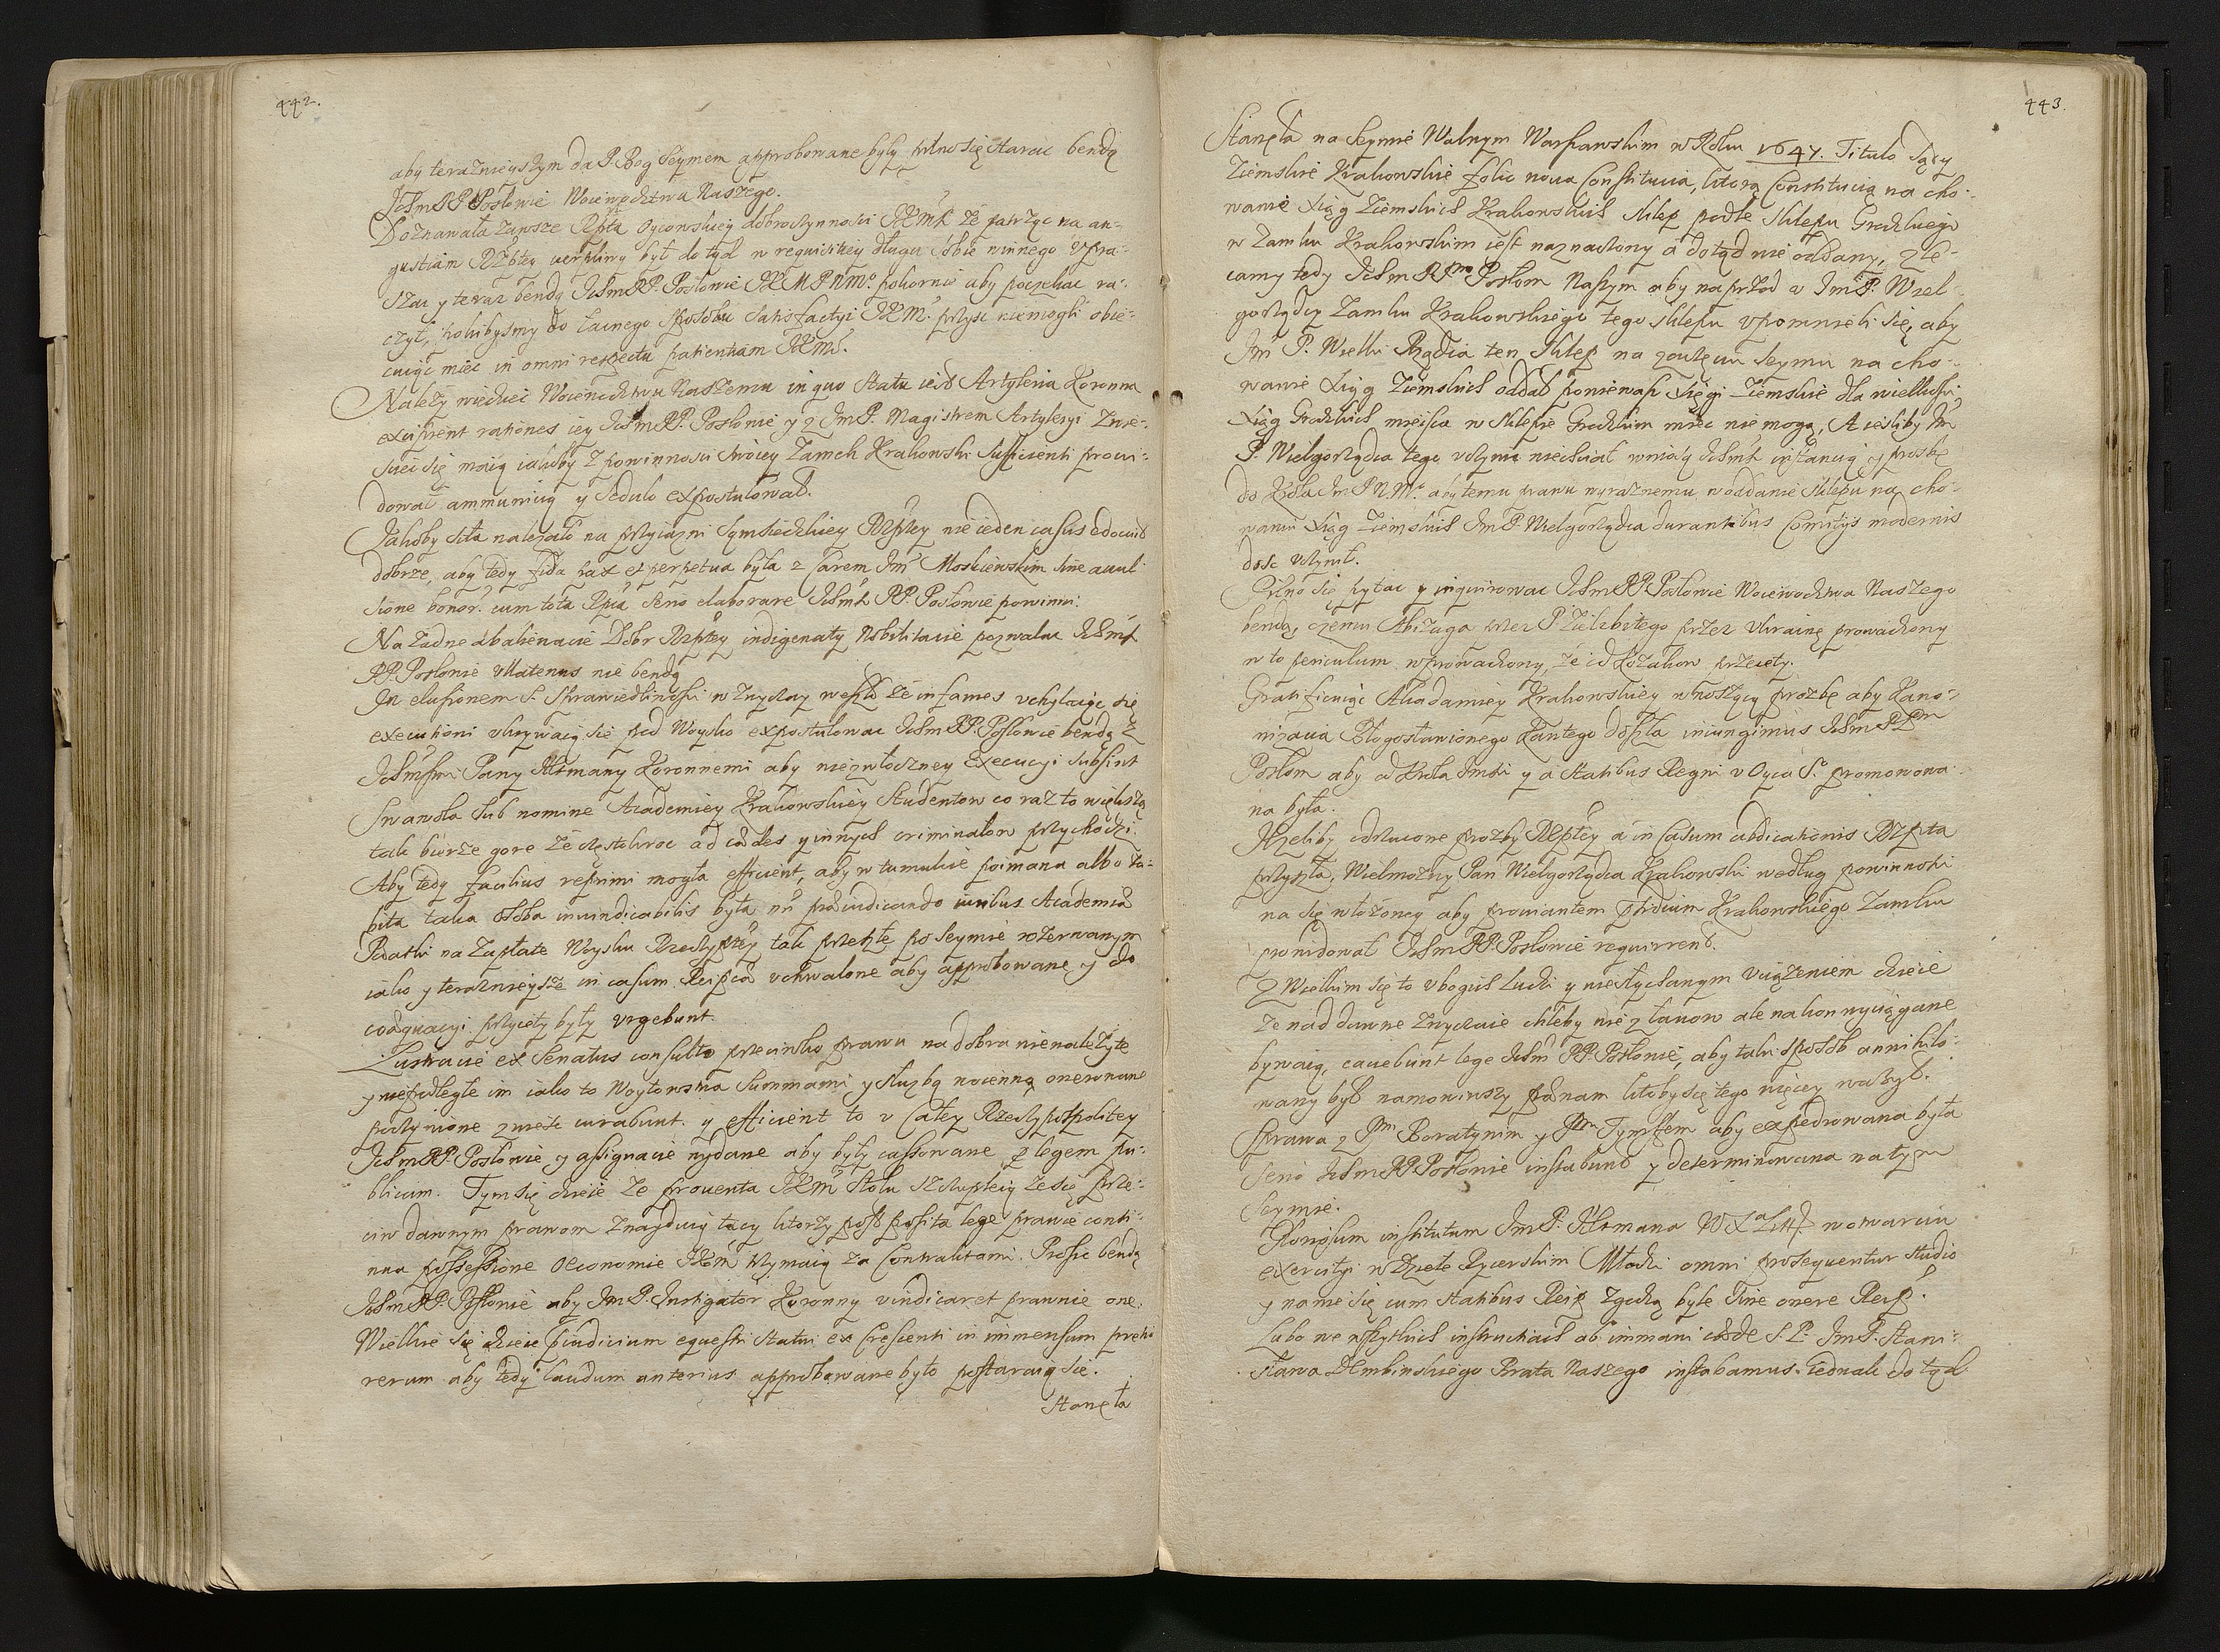 442.
aby teraznieyszym da P. Bog Seymem approbowane były pilno się starac bendą
IchmPP Posłowie Woiewodztwa Naszego.
Doznawała zawsze Rpta Oycowskiey dobroczynnosci JKMci że patrząc na an-
gustiam Rzptey cierpliwy był do tąd w requisitiey długu sobie winnego Upra-
szac y teraz bendą IchmPP. Posłowie JKMPNMo. pokornie aby poczekac ra-
czył, pokibysmy do łacnego sposobu satisfactyi JKM. przyisc niemogli obie-
cuiąc miec in omni respectu patientiam JKMci.
Należy wiedziec Woiewodztwu Naszemu in quo statu iest Artyleria Koronna
excipient rationes iey IchmPP. Posłowie y z JmP. Magistrem Artyleryi znie-
sieć się maią iakoby z powinnosci swoiey Zamek Krakowski sufficienti prowi-
dował ammunicią y sedulo expostulowali.
Jakoby siła należało na przyiazni sąmsiedzkiey Rzptey nie ieden casus edocuit
dobrze, aby tedy fida pax et perpetua była z Carem Jmć Moskiewskim sine avul
sione bonor. cum tota Rpca serio elaborare Ichmć PP. Posłowie powinni.
Na żadne abalienacie Dobr Rzptey indigenaty Nobilitacie pozwalac Ichmć
PP. Posłowie ullatenus nie bendą
In elusionem S. Sprawiedliwosci w zwyczay weszło że infames uchylaiąc się
executioni ukrywaią się pod Woysko expostulowac IchmPP. Posłowie bendą z
Ichmściami Pany Hetmany Koronnemi aby niezwłoczney Execucyi subsint
Swawola sub nomine Academiey Krakowskiey Studentow co raz to większą
tak bierze gorę że częstokroc ad cædes y innych criminałow przychodzi.
Aby tedy facilius reprimi mogła efficient, aby w tumulcie poimana albo za-
bita taka osoba invindicabilis była nõ præiudicando iuribus Academiæ
Podatki na zapłate Woysku Rzeczyptey tak przeszłe po Seymie rozerwanym
iako y teraznieysze in casum Reipcæ uchwalone aby approbowane y do
coæquacyi przyięty były urgebunt.
Lustracie ex Senatus consulto przeciwko prawu na dobra nienależyte
y niepodległe im iako to Woytowstwa summami y służbą woienną onerowane
poczynione znieść curabunt. y efficient to u całey Rzeczypospolitey
IchmPP. Posłowie y assignacie wydane aby były cassowane p legem pu-
blicam. Tym się dzieie że proventa JKM Stołu szczupleią że się prze-
ciw dawnym prawom znayduią tacy ktorzy post posita lege prawie conti-
nua possessione Oeconomie JKM trzymaią za Contraktami. Prosic bendą
IchmPP. Posłowie aby JmP. Instigator Koronny vindicaret prawnie one.
Wielkie się dzieie præiudicium equestri statui ex crescenti in immensum pretio
rerum aby tedy laudum anterius approbowane było postaraią się.
Stanęła
443.
Stanęła na Seymie Walnym Warszawskim w Roku 1647. Titulo Sądy
Ziemskie Krakowskie folio nova Constitucia, ktorą Constitucią na cho-
wanie Xiąg Ziemskich Krakowskich sklep podle sklepu Grodzkiego
w Zamku Krakowskim iest naznaczony a dotąd nie oddany, zle-
camy tedy IchmPPm Posłom Naszym aby naprzod u JmP. Wiel-
gorządcy Zamku Krakowskiego tego sklepu upomnieli się, aby
Jm P. Wielki Rządca ten sklep na początku Seymu na cho-
wanie Xiąg Ziemskich oddał poniewasz Xięgi Ziemskie dla wielkosci
Xiąg Grodzkich mieisca w sklepie Grodzkim mieć nie mogą, A iesliby Jm
P. Wielgorządca tego uczynic niechciał wniosą Ichmć instancią y prosbę
do Krola JmPNMo. aby temu prawu wyraznemu w oddanie sklepu na cho-
waniu Xiąg Ziemskich JmP. Wielgorządca durantibus Comitijs modernis
dosc uczynił.
Pilno się pytac y inquirowac IchmPP. Posłowie Woiewodztwa Naszego
bendą, czemu Abizuga przez P Zielibitego przez Ukrainę prowadzony
w to periculum wprowadzony, że od Kozakow przeięty.
Gratificuiąc Akadamiey Krakowskiey wnoszący prozbę aby Kano-
nizacia Błogosławionego Kantego doszła iniungimus IchmPPm
Posłom aby od Krola Jmści y a statibus Regni u Oyca So. promowowa-
na była.
Jżeliby odrzucone prozby Rzptey a in casum abdicationis Rzpta
przyszła, Wielmożny Pan Wielgorządca Krakowski według powinnosci
na się włożoney aby prowiantem præsidium Krakowskiego Zamku
prowidował IchmPP. Posłowie requirent.
Z wielkim się to ubogich Ludzi y niesłychanym uciążeniem dzieie
że nad dawne zwyczaie chleby nie z łanow ale na kon wyciągane
bywaią, cavebunt lege Ichm PP. Posłowie, aby taki sposob annihilo-
wany był namowiwszy pœnam ktoby się tego więcey ważył.
Sprawa z Pm Boratynim y Pm Tymffem aby expediowana była
serio IchmPP. Posłowie instabunt y determinowana na tym
Seymie.
Gloriosum institutum JmP. Hetmana WXaLitt. w otwarciu
exercitÿi w Dziele Rycerskim Młodzi omni prosequentur studio
y namie się cum statibus Reip zgodzą byle sine onere Reip.
Lubo we wszytkich instructiach ab immani cæde S.P. JmP. Stani-
sława Dembinskiego Brata Naszego instabamus. iednak do tąd